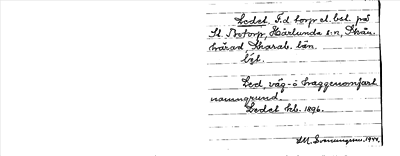 Ledet. F.d torp el. bst. på
St. Botorp, Härlunda s:n, Skån.
härad, Skarab. län.
bft.
Led, väg- o haggenomfart
namngrund.
Ledet hb. 1896.
1944.